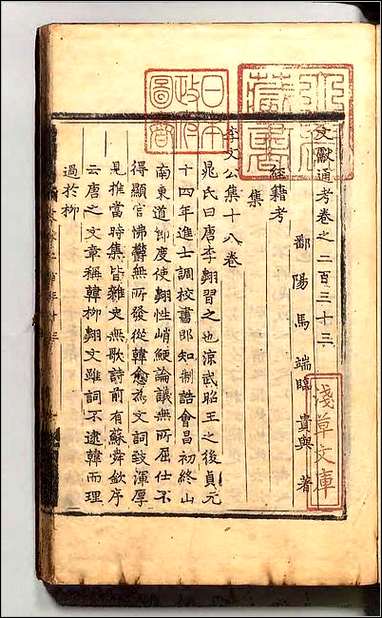 文獻通考卷之二百三十三
鄱陽馬端臨貴與著
經籍考
集
李文公集十八卷
晁氏曰唐李翺習之也涼武昭王之後貞元
十四年進士調校書郎知制誥會昌初終山
南東道節度使翺性峭鯁論議無所屈仕不
得顯官怫鬱無所發從韓愈為文詞致渾厚
見推當時集皆雜史無歌詩前有蘇舜欽序
云唐之文章稱韓柳翺文雖詞不逮韓而理
過於柳
日本
政府
圖書
淺草文庫
藏書